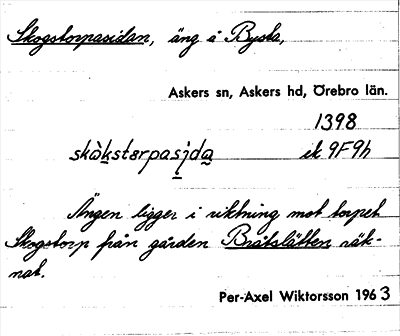 Skogstorpasidan, äng i Bysta,
Askers sn, Askers hd, Örebro län.
1398
skòkstərpasịda ek 9F9h
Ängen ligger i riktning mot torpet
Skogstorp från gården Bråtslätten räk-
nat.
Per-Axel Wiktorsson 1963